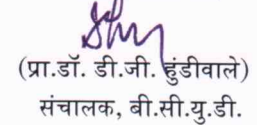 (प्रा.डॉ. डी.जी. हुंडीवाले)
संचालक, बी.सी.यु.डी.